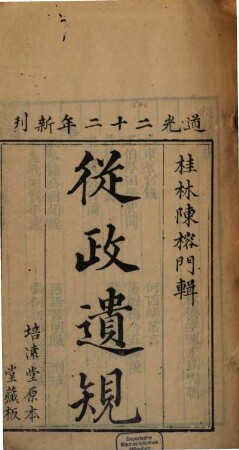 道光二十二年新刊
桂林陳榕門輯
從政遺規
培遠堂原本
堂藏板
Bayerische
Staatsbibliothek
München